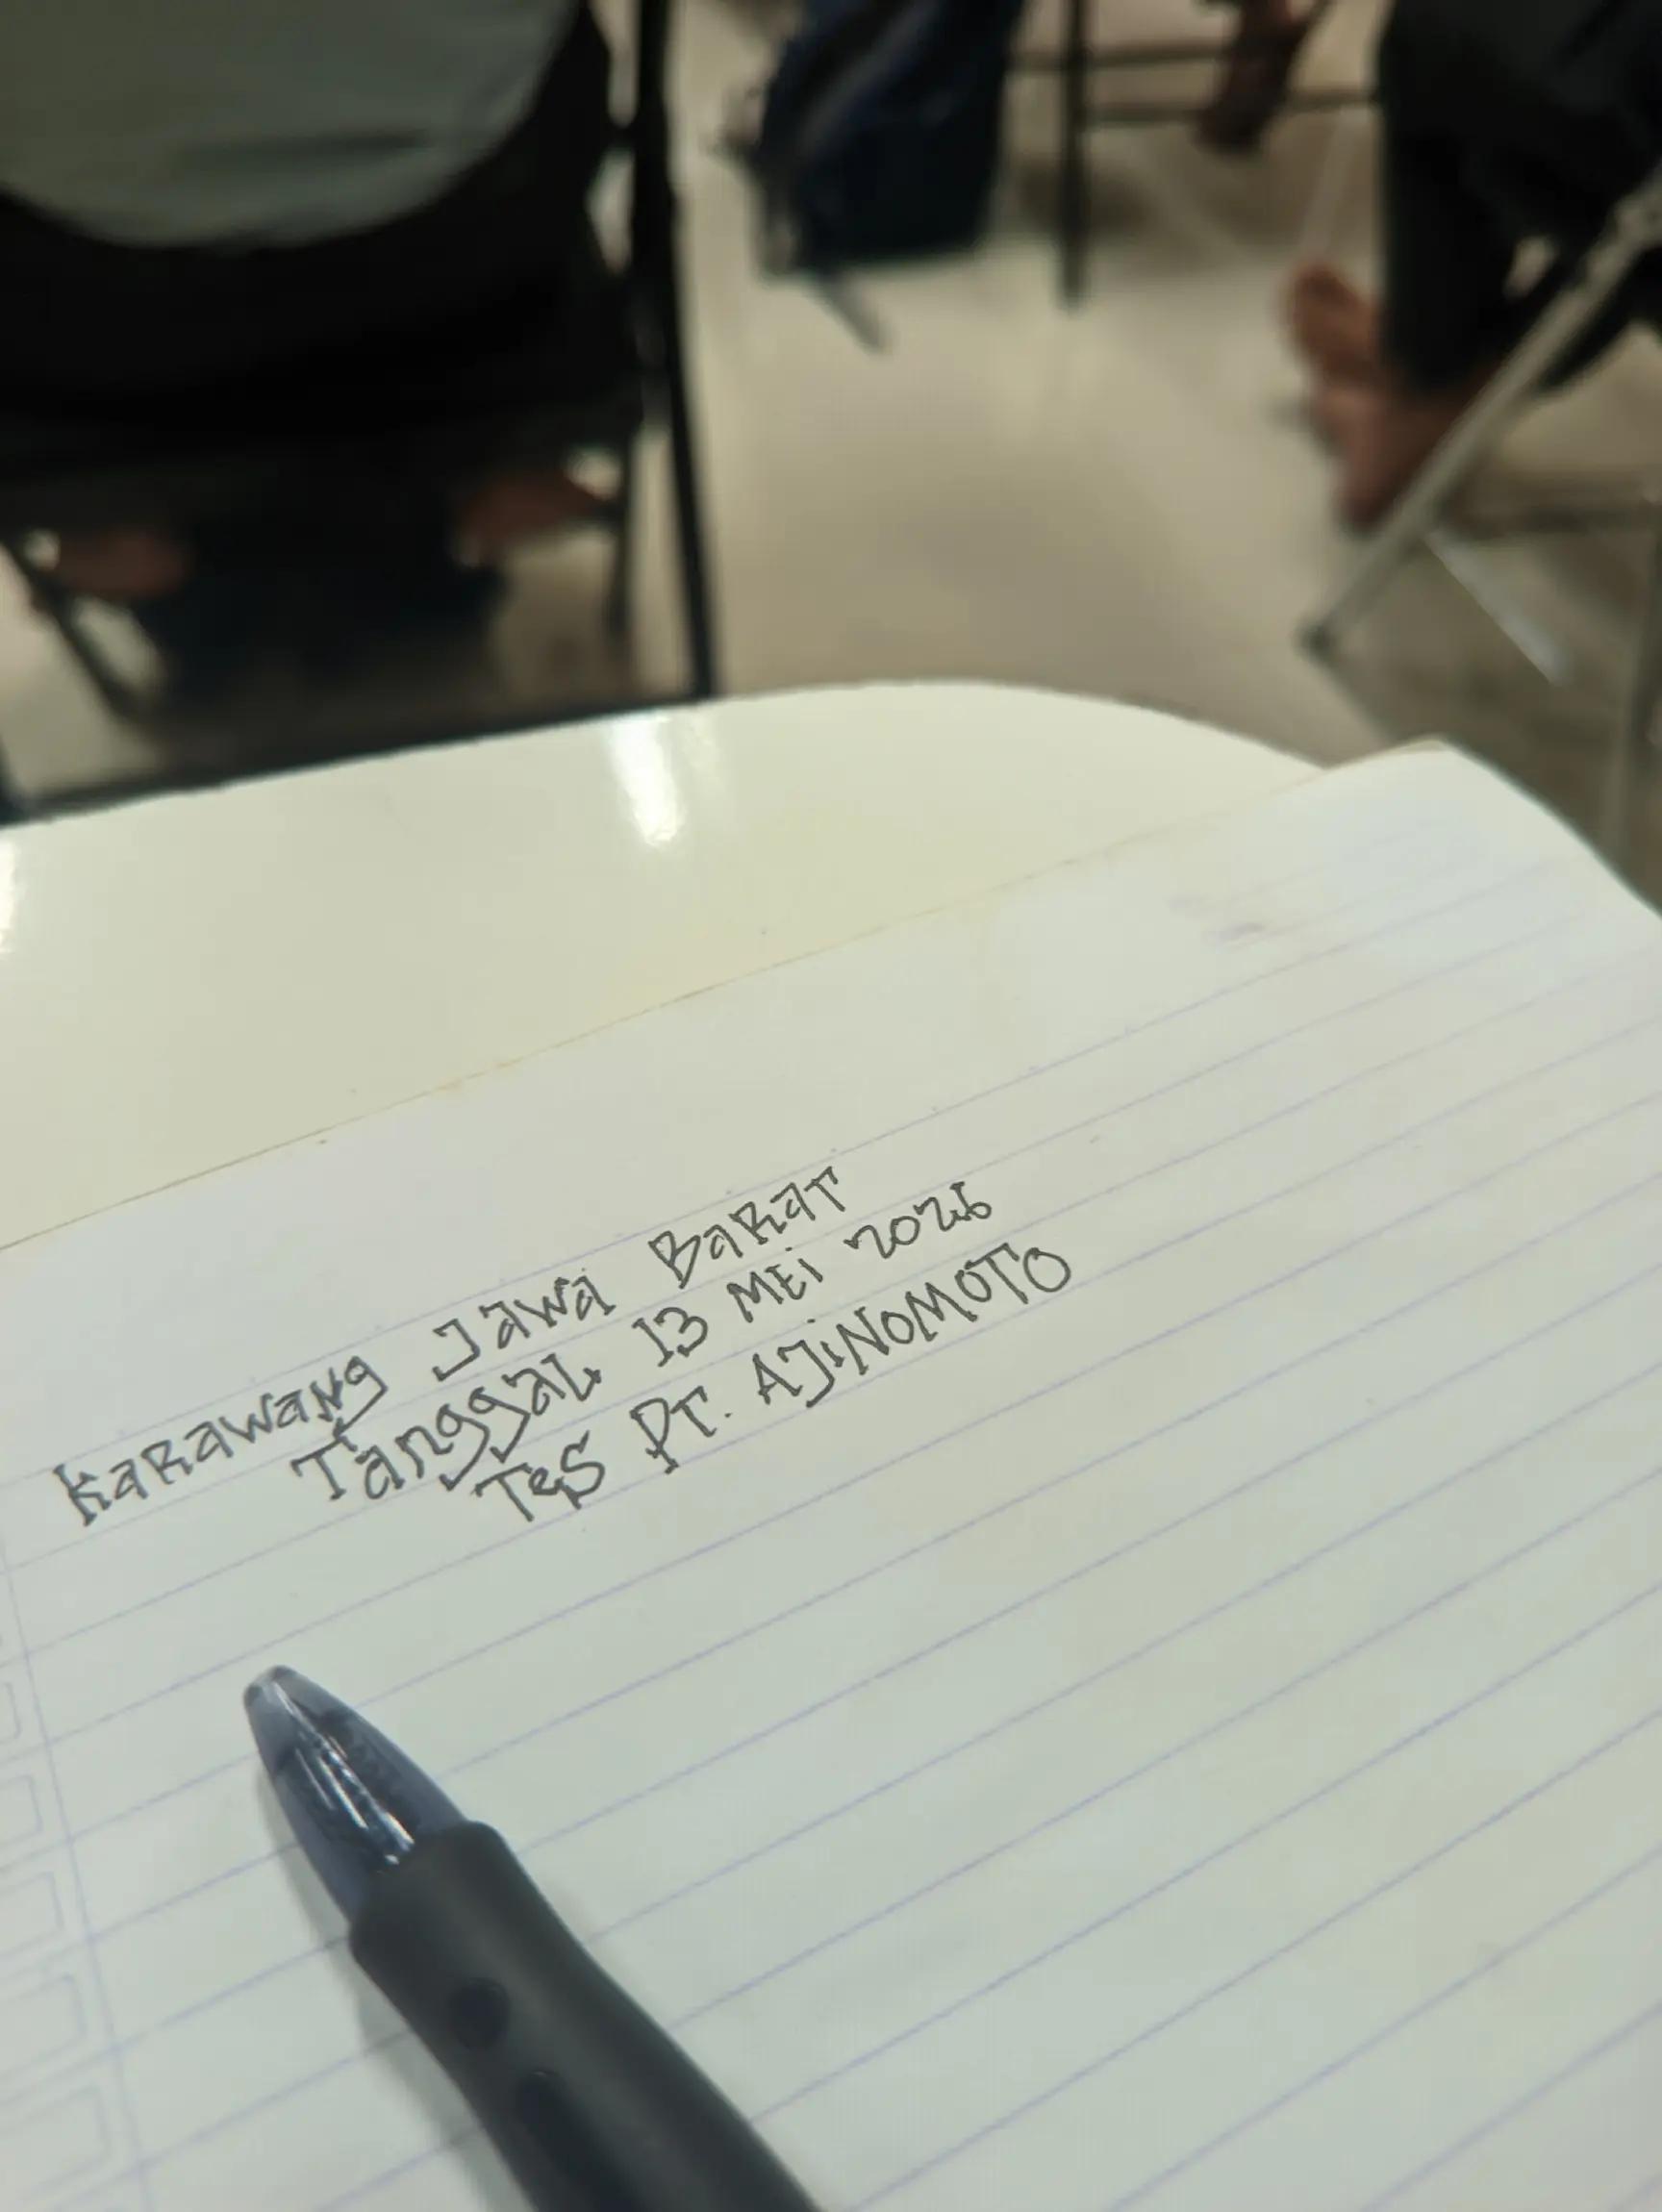 KARAWANG JAWA BARAT
TanggaL 13 MEi 2026
TeS PT. AJiNOMOTO